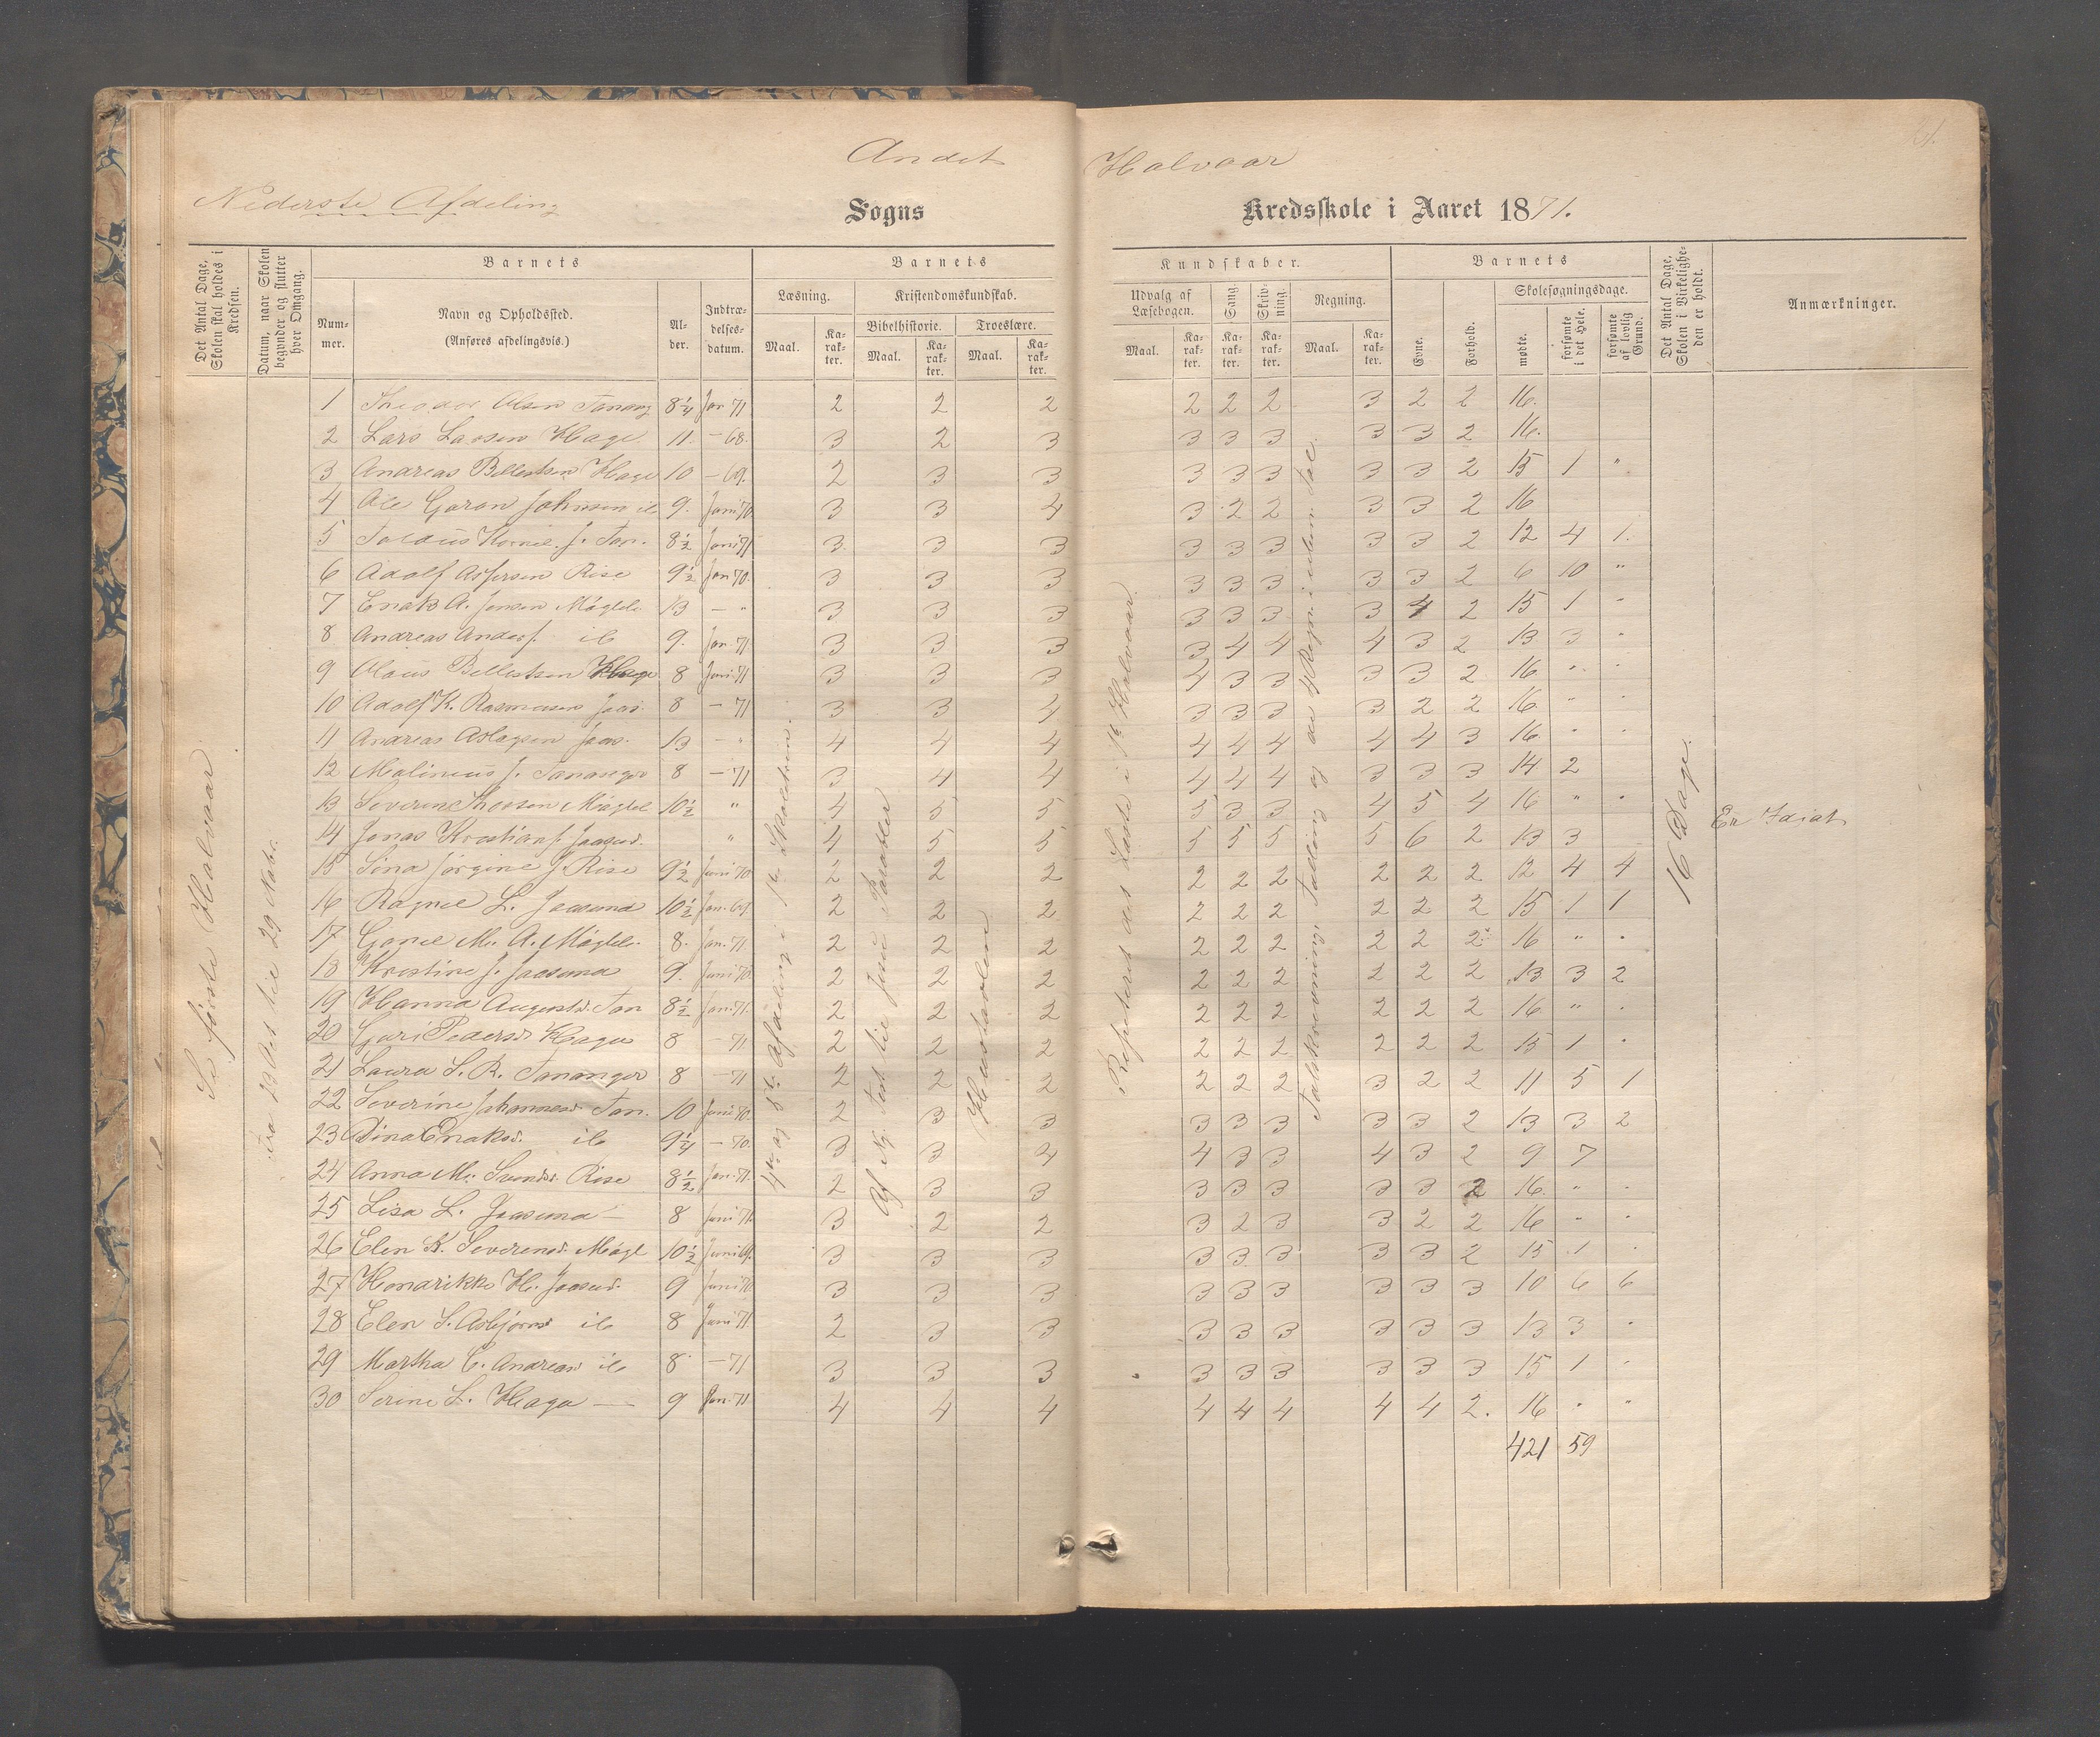 Andet Halvaar
61.
Nederste Afdeling Sogns Kredsskole i Aaret 1871.
Det Antal Dage, Skolen skal holdes i Kredsen.
Datum, naar Skolen begynder og slutter hver Omgang.
Barnets
Nummer.
Navn og Opholdssted. (Anføres afdelingsvis.)
Alder.
Indtrædelsesdatum.
Barnets
Læsning.
Maal.
Karakter.
Kristendomskundskab.
Bibelhistorie.
Maal.
Karakter.
Troeslære.
Maal.
Karakter.
Kundskaber.
Udvalg af Læsebogen.
Maal.
Karakter.
Sang.
Karakter.
Skrivning.
Karakter.
Regning.
Maal.
Karakter.
Barnets
Evne.
Forhold.
Skolesøgningsdage.
mødte.
forsømte i det Hele.
forsømte af lovlig Grund.
Det Antal Dage, Skolen i Virkeligheden er holdt.
Anmærkninger.
Se første Halvaar
fra 13 Oct til 29 Nobr.
4de og 8de Afdeling i 1ste Skoletrin.
Af Ny. Test. til Jesu Parabler
Hustavlen
Repeteret det Læste i 1ste Halvaar.
Talskrivning, Tælling og de 4 Regn. i uben. Tal.
16 Dage.
1 Theodor Olsen Tanang 8 1/4 Jan 71 2 2 2 2 2 2 3 2 2 16.
2 Lars Larsen Hage 11. – 68. 3 2 3 3 3 3 3 3 2 16.
3 Andreas Bellestsen Hage 10 – 69. 2 3 3 3 3 3 3 3 2 15 1 "
4 Ole Gøran Johnsen ib 9. Juni 70 3 3 4 3 2 2 3 3 2 16
5 Kornel. J. Tan. 8 1/2 Juni 71 3 3 3 3 3 3 3 3 2 12 4 1.
6 Adolf Asperson Rise 9 1/2 Jan 70. 3 3 3 3 3 3 3 3 2 6 10 "
7 Enok A. Jensen Mägtele. 13 – " 3 3 3 3 3 3 3 4 2 15 1 "
8 Andreas Anders. ib 9. Jan 71. 3 3 3 3 4 4 4 3 2 13 3 "
9 Olaus Bellestsen Hage 8 Juni 71 3 3 3 4 3 3 3 3 2 16 " "
10 Adolf K. Rasmusen Jaas. 8 – 71 3 3 4 3 3 3 3 2 2 16 " "
11 Andreas Aslagsen Jaas. 13 – " 4 4 4 4 4 4 4 4 3 16 " "
12 Malinius J. Tananger 8 – 71 3 4 4 4 4 4 3 3 3 14 2
13 Severin Thorsen Mägtel 10 1/2 " 4 5 5 5 3 3 4 5 4 16 " "
14 Jonas Kristians. Jaasud. " 4 5 5 5 5 5 5 6 2 13 3 En Idiot
15 Sina Jørgine J. Rise 9 1/2 Juni 70 2 2 2 2 2 2 2 2 2 12 4 4
16 Ragnel L. Jaasund 10 1/2 Jan. 69. 2 2 2 2 2 2 2 2 2 15 1 1
17 Gonel M. A. Mägtele. 8. Jan. 71 2 2 2 2 2 2 2 2 2 16 " "
18 Kristine J. Jaasund 9. Juni 70 2 2 2 2 2 2 2 2 2 13 3 2
19 Hanna Augustd. Tan 8 1/2 Jan. 71. 2 2 2 2 2 2 2 2 2 16 " "
20 Guri Pedersd. Hage 8 – 71 2 2 2 2 2 2 2 2 2 15 1 "
21 Laura S. R. Tananger 8 – 71 2 2 2 2 2 2 3 2 2 11 5 1
22 Severine Johannesd. Tan. 10 Juni 70. 2 3 3 3 3 3 3 3 2 13 3 2
23 Dina Enoksd. ib 9 1/4 – 70. 3 3 4 4 3 3 4 3 2 9 7
24 Anna M. Svendsd. Rise 8 1/2 Jan. 71. 2 3 3 3 3 3 3 3 2 16. " "
25 Lisa L. Jaasund – 8 Juni 71. 3 2 2 3 2 3 3 2 2 16 " "
26 Elen K. Severinsd. Mägt 10 1/2 Juni 69. 3 3 3 3 3 3 3 3 2 15 1 "
27 Henrikke H. Jaasud. 9 Juni 70. 3 3 3 3 3 3 3 3 3 10 6 6
28 Elen S. Asbjørnsd ib 8 Juni 71 2 3 3 3 3 3 3 3 3 13 3 "
29 Martha C. Andreasd ib 8 – 71 3 3 3 3 3 3 3 3 3 15 1 "
30 Serine L. Hage – 9 Jan. 71 4 4 4 4 4 4 4 4 2. 16 " "
421 59